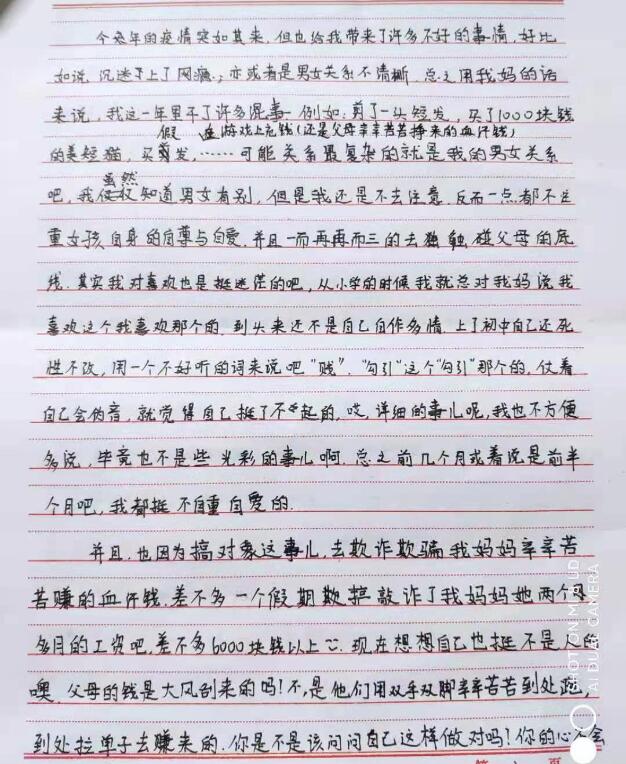 今年的疫情突如其来，但也给我带来了许多不好的事情，好比
如说，沉迷上了网瘾；亦或者是男女关系不清晰，总之用我妈的话
来说，我这一年里干了许多混事，例如：剪了一头短发，买了1000块钱
的美短猫，买假发，……往游戏上充钱(还是父母辛辛苦苦挣来的血汗钱)可能关系最复杂的就是我的男女关系
吧，我虽然知道男女有别，但是我还是不去注意，反而一点都不注
重女孩自身的自尊与自爱，并且一而再再而三的去触碰父母的底
线.其实我对喜欢也是挺迷茫的吧，从小学的时候我就总对我妈说我
喜欢这个我喜欢那个的，到头来还不是自己自作多情，上了初中自己还死
性不改，用一个不好听的词来说吧"贱"，"勾引"这个"勾引"那个的，仗着
自己会伪音，就觉得自己挺了不起的，哎，详细的事儿呢，我也不方便
多说，毕竟也不是些光彩的事儿啊.总之前几个月或着说是前半
个月吧，我都挺不自重自爱的.
并且，也因为搞对象这事儿，去欺诈欺骗我妈妈辛辛苦
苦赚的血汗钱.差不多一个假期敲诈了我妈妈她两个
多月的工资吧，差不多6000块钱以上.现在想想自己也挺不是人的
噢，父母的钱是大风刮来的吗！不，是他们用双手双脚辛辛苦苦到处跑，
到处拉单子去赚来的.你是不是该问问自己这样做对吗！你的心不会
SHOT ON MI PLAY
AI DUAL CAMERA
第 页